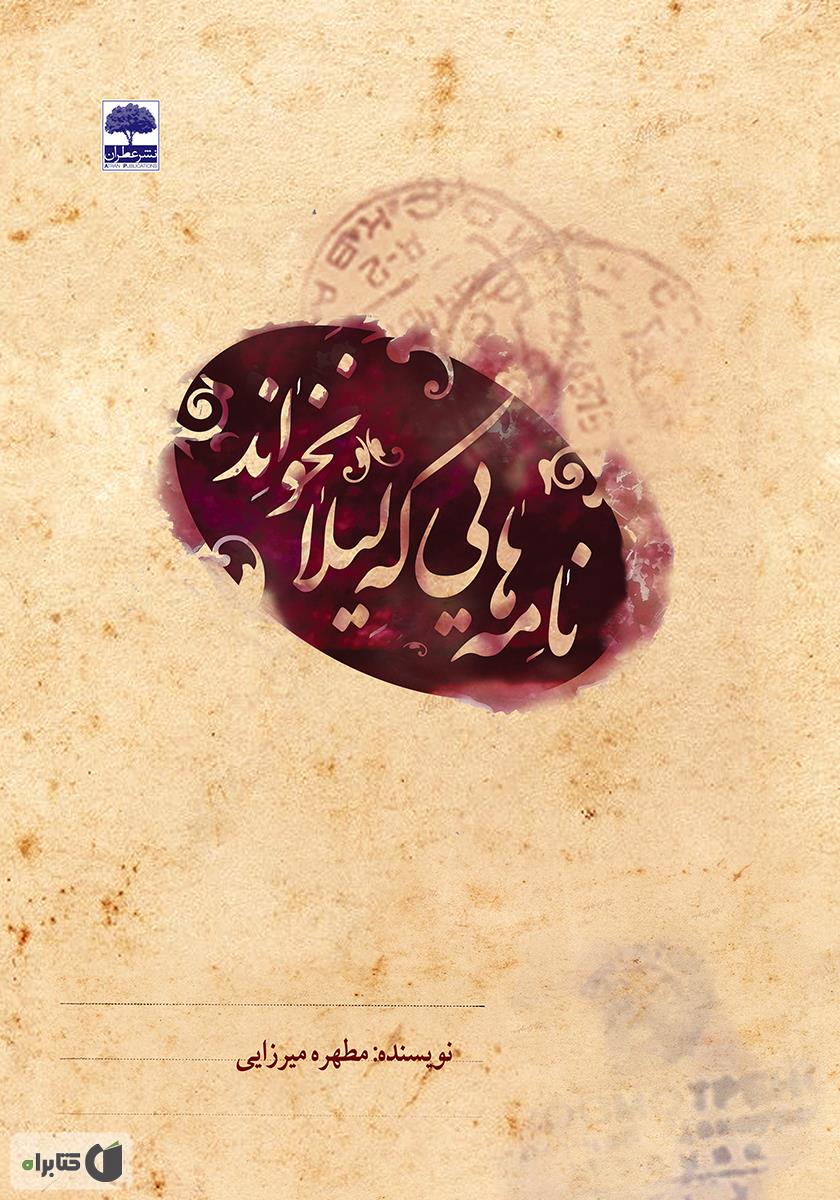 نشر عطران
ATRAN PUBLICATIONS
نامه‌هایی که لیلا نخواند
نویسنده: مطهره میرزایی
کتابراه